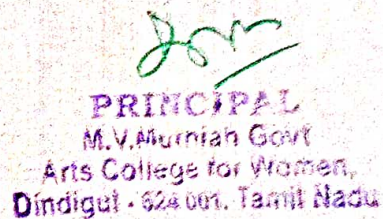 PRINCIPAL
M.V.Murniah Govt
Arts College for Women,
Dindigul - 624 001. Tamil Nadu